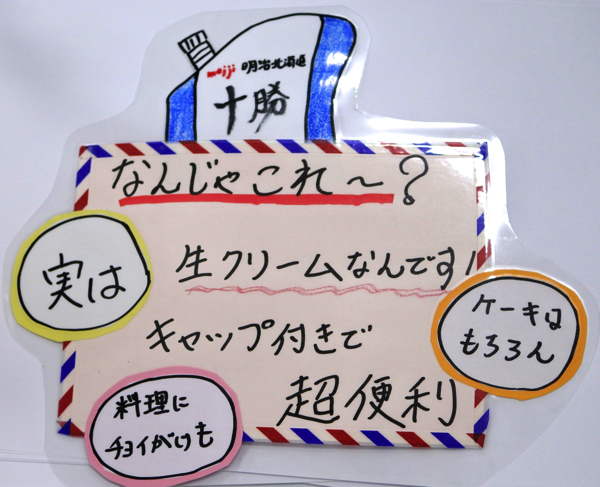 meiji 明治北海道
十勝
なんじゃこれ～？
実は
生クリームなんです!
キャップ付きで
超便利
ケーキは
もろろん
料理に
チョイがけも